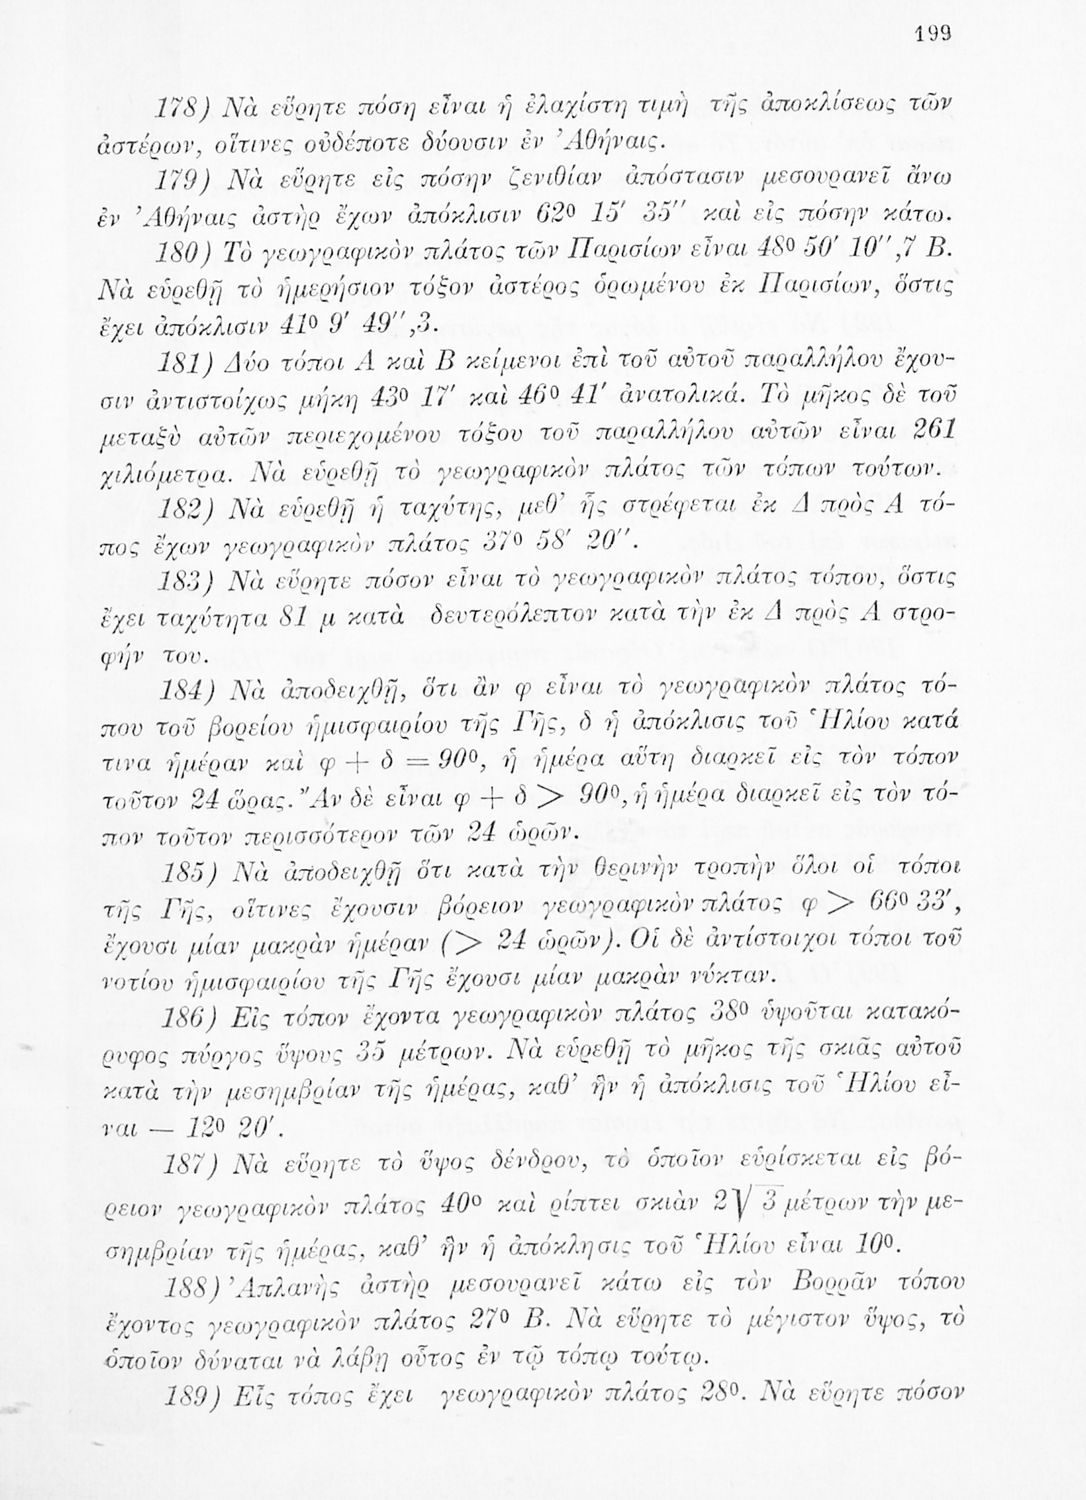 199
178) Νὰ εὕρητε πόση εἶναι ἡ ἐλαχίστη τιμὴ τῆς ἀποκλίσεως τῶν
ἀστέρων, οἵτινες οὐδέποτε δύουσιν ἐν Ἀθήναις.
179) Νὰ εὕρητε εἰς πόσην ζενιθίαν ἀπόστασιν μεσουρανεῖ ἄνω
ἐν Ἀθήναις ἀστὴρ ἔχων ἀπόκλισιν 62⁰ 15′ 35″ καὶ εἰς πόσην κάτω.
180) Τὸ γεωγραφικὸν πλάτος τῶν Παρισίων εἶναι 48⁰ 50′ 10″,7 Β.
Νὰ εὑρεθῇ τὸ ἡμερήσιον τόξον ἀστέρος ὁρωμένου ἐκ Παρισίων, ὅστις
ἔχει ἀπόκλισιν 41⁰ 9′ 49″,3.
181) Δύο τόποι Α καὶ Β κείμενοι ἐπὶ τοῦ αὐτοῦ παραλλήλου ἔχου-
σιν ἀντιστοίχως μήκη 43⁰ 17′ καὶ 46⁰ 41′ ἀνατολικά. Τὸ μῆκος δὲ τοῦ
μεταξὺ αὐτῶν περιεχομένου τόξου τοῦ παραλλήλου αὐτῶν εἶναι 261
χιλιόμετρα. Νὰ εὑρεθῇ τὸ γεωγραφικὸν πλάτος τῶν τόπων τούτων.
182) Νὰ εὑρεθῇ ἡ ταχύτης, μεθ’ ἧς στρέφεται ἐκ Δ πρὸς Α τό-
πος ἔχων γεωγραφικὸν πλάτος 37⁰ 58′ 20″.
183) Νὰ εὕρητε πόσον εἶναι τὸ γεωγραφικὸν πλάτος τόπου, ὅστις
ἔχει ταχύτητα 81 μ κατὰ δευτερόλεπτον κατὰ τὴν ἐκ Δ πρὸς Α στρο-
φήν του.
184) Νὰ ἀποδειχθῇ, ὅτι ἂν φ εἶναι τὸ γεωγραφικὸν πλάτος τό-
που τοῦ βορείου ἡμισφαιρίου τῆς Γῆς, δ ἡ ἀπόκλισις τοῦ Ἡλίου κατά
τινα ἡμέραν καὶ φ + δ = 90⁰, ἡ ἡμέρα αὕτη διαρκεῖ εἰς τὸν τόπον
τοῦτον 24 ὥρας. Ἂν δὲ εἶναι φ + δ > 90⁰, ἡ ἡμέρα διαρκεῖ εἰς τὸν τό-
πον τοῦτον περισσότερον τῶν 24 ὡρῶν.
185) Νὰ ἀποδειχθῇ ὅτι κατὰ τὴν θερινὴν τροπὴν ὅλοι οἱ τόποι
τῆς Γῆς, οἵτινες ἔχουσιν βόρειον γεωγραφικὸν πλάτος φ > 66⁰ 33′,
ἔχουσι μίαν μακρὰν ἡμέραν (> 24 ὡρῶν). Οἱ δὲ ἀντίστοιχοι τόποι τοῦ
νοτίου ἡμισφαιρίου τῆς Γῆς ἔχουσι μίαν μακρὰν νύκταν.
186) Εἰς τόπον ἔχοντα γεωγραφικὸν πλάτος 38⁰ ὑψοῦται κατακό-
ρυφος πύργος ὕψους 35 μέτρων. Νὰ εὑρεθῇ τὸ μῆκος τῆς σκιᾶς αὐτοῦ
κατὰ τὴν μεσημβρίαν τῆς ἡμέρας, καθ’ ἣν ἡ ἀπόκλισις τοῦ Ἡλίου εἶ-
ναι — 12⁰ 20′.
187) Νὰ εὕρητε τὸ ὕψος δένδρου, τὸ ὁποῖον εὑρίσκεται εἰς βό-
ρειον γεωγραφικὸν πλάτος 40⁰ καὶ ρίπτει σκιὰν 2√3 μέτρων τὴν με-
σημβρίαν τῆς ἡμέρας, καθ’ ἣν ἡ ἀπόκλησις τοῦ Ἡλίου εἶναι 10⁰.
188) Ἀπλανὴς ἀστὴρ μεσουρανεῖ κάτω εἰς τὸν Βορρᾶν τόπου
ἔχοντος γεωγραφικὸν πλάτος 27⁰ Β. Νὰ εὕρητε τὸ μέγιστον ὕψος, τὸ
ὁποῖον δύναται νὰ λάβῃ οὗτος ἐν τῷ τόπῳ τούτῳ.
189) Εἷς τόπος ἔχει γεωγραφικὸν πλάτος 28⁰. Νὰ εὕρητε πόσον